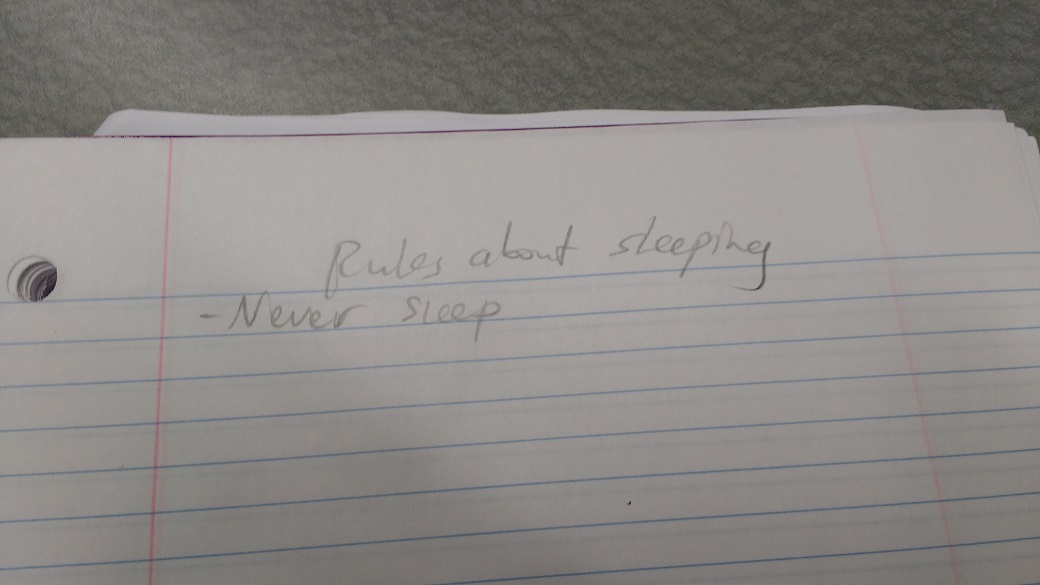 Rules about sleeping
- Never sleep